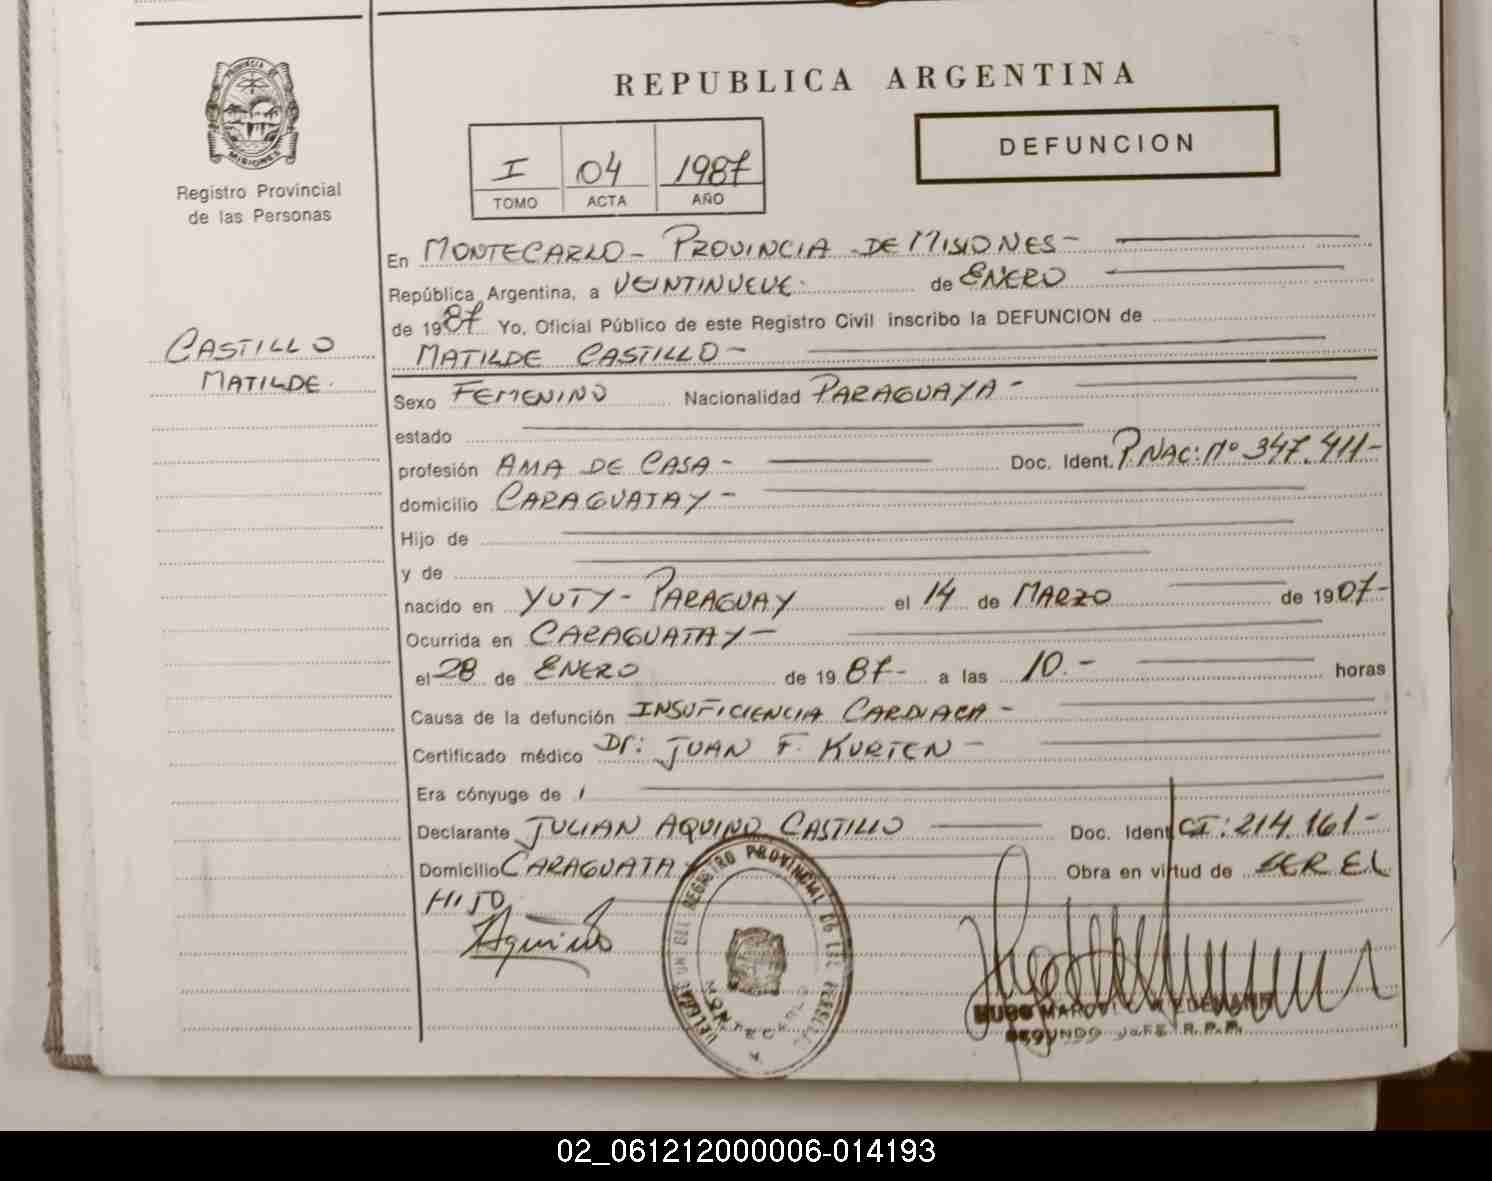 REPUBLICA ARGENTINA
PROVINCIA DE
MISIONES
Registro Provincial
de las Personas
I 04 1987
TOMO ACTA AÑO
DEFUNCION
En MONTECARLO - PROVINCIA - DE MISIONES -
República Argentina, a VEINTINUEVE. de ENERO
de 1987 Yo, Oficial Público de este Registro Civil inscribo la DEFUNCION de
MATILDE CASTILLO -
CASTILLO
MATILDE.
Sexo FEMENINO Nacionalidad PARAGUAYA -
estado
profesión AMA DE CASA - Doc. Ident. P. NAC: Nº 347.411 -
domicilio CARAGUATAY -
Hijo de
y de
nacido en YUTY - PARAGUAY el 14 de MARZO de 1907 -
Ocurrida en CARAGUATAY -
el 28 de ENERO de 1987 - a las 10. - horas
Causa de la defunción INSUFICIENCIA CARDIACA -
Certificado médico Dr: JUAN F. KURTEN -
Era cónyuge de
Declarante JULIAN AQUINO CASTILLO Doc. Ident CI: 214.161 -
Domicilio CARAGUATAY Obra en virtud de SER EL
HIJO
Aquino
REGISTRO PROVINCIAL DE LAS PERSONAS
MONTECARLO
HUGO
SEGUNDO JEFE R.P.P.
02_061212000006-014193